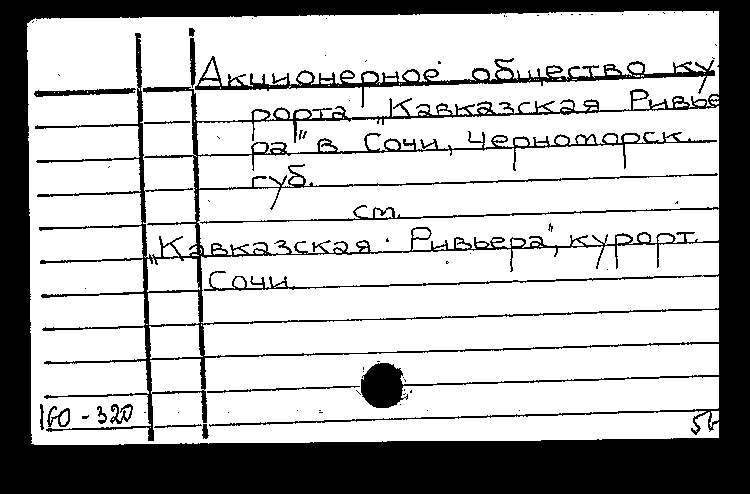 Акционерное общество ку-
рорта „Кавказская Ривье-
ра" в Сочи, Черноморск.
губ.
см.
„Кавказская Ривьера", курорт.
Сочи.
160 - 320